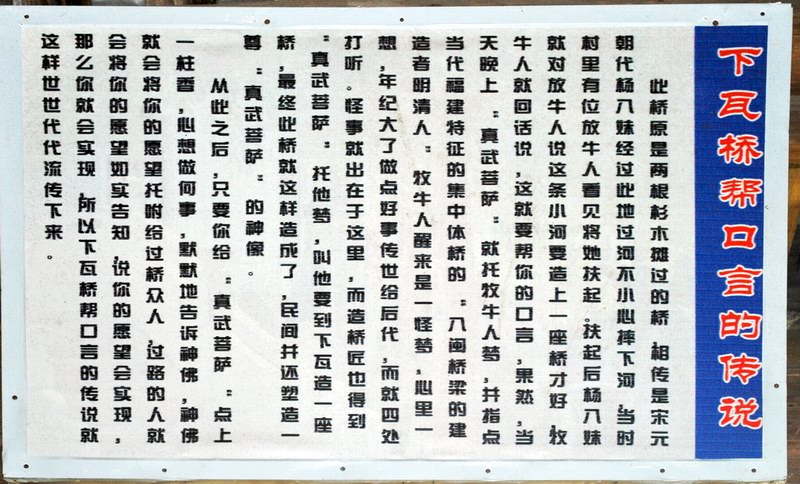 下瓦桥帮口言的传说
此桥原是两根杉木摊过的桥,相传是宋元
朝代杨八妹经过此地过河不小心摔下河,当时
村里有位放牛人看见将她扶起。扶起后杨八妹
就对放牛人说这条小河要造上一座桥才好,牧
牛人就回话说,这就要帮你的口言,果然,当
天晚上,“真武菩萨”就托牧牛人梦,并指点
当代福建特征的集中体桥的“八闽桥梁的建
造者明清人”牧牛人醒来是一怪梦,心里一
想,年纪大了做点好事传世给后代,而就四处
打听。怪事就出在于这里,而造桥匠也得到
“真武菩萨”托他梦,叫他要到下瓦造一座
桥,最终此桥就这样造成了,民间并还塑造一
尊“真武菩萨”的神像。
从此之后,只要你给“真武菩萨”点上
一柱香,心想做何事,默默地告诉神佛,神佛
就会将你的愿望托咐给过桥众人,过路的人就
会将你的愿望如实告知,说你的愿望会实现,
那么你就会实现,所以下瓦桥帮口言的传说就
这样世世代代流传下来。